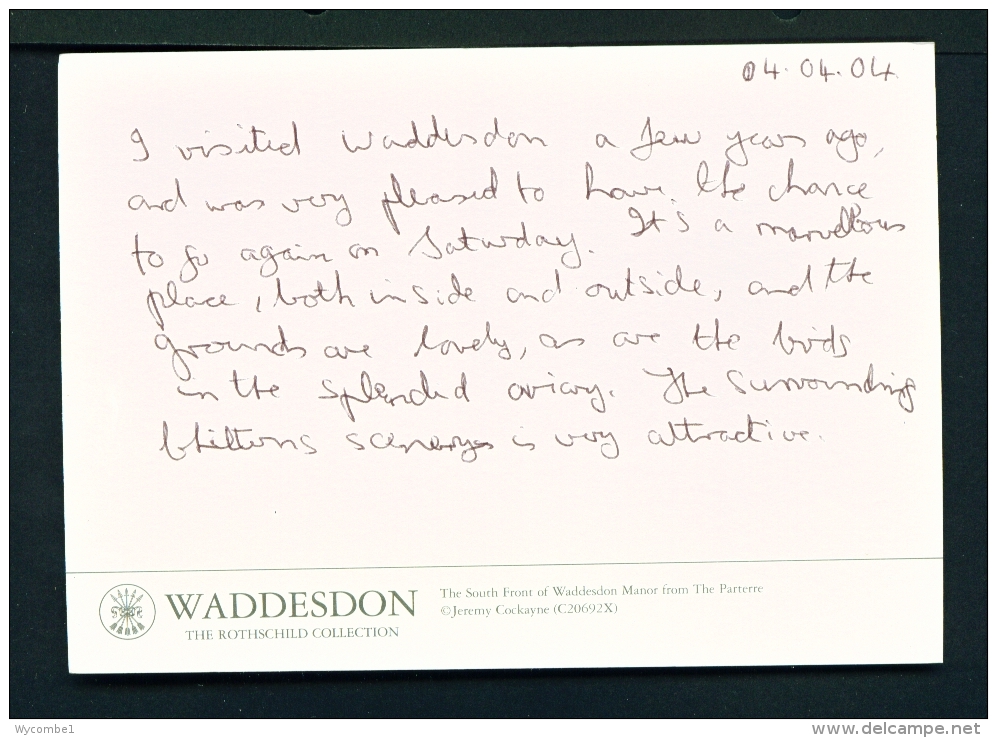 04.04.04
I visited Waddesdon a few years ago,
and was very pleased to have the chance
to go again on Saturday. It's a marvellous
place, both inside and outside, and the
grounds are lovely, as are the birds
in the splendid aviary. The surrounding
Chilterns scenery is very attractive.
WADDESDON
THE ROTHSCHILD COLLECTION
The South Front of Waddesdon Manor from The Parterre
©Jeremy Cockayne (C20692X)
Wycombe1
www.delcampe.net